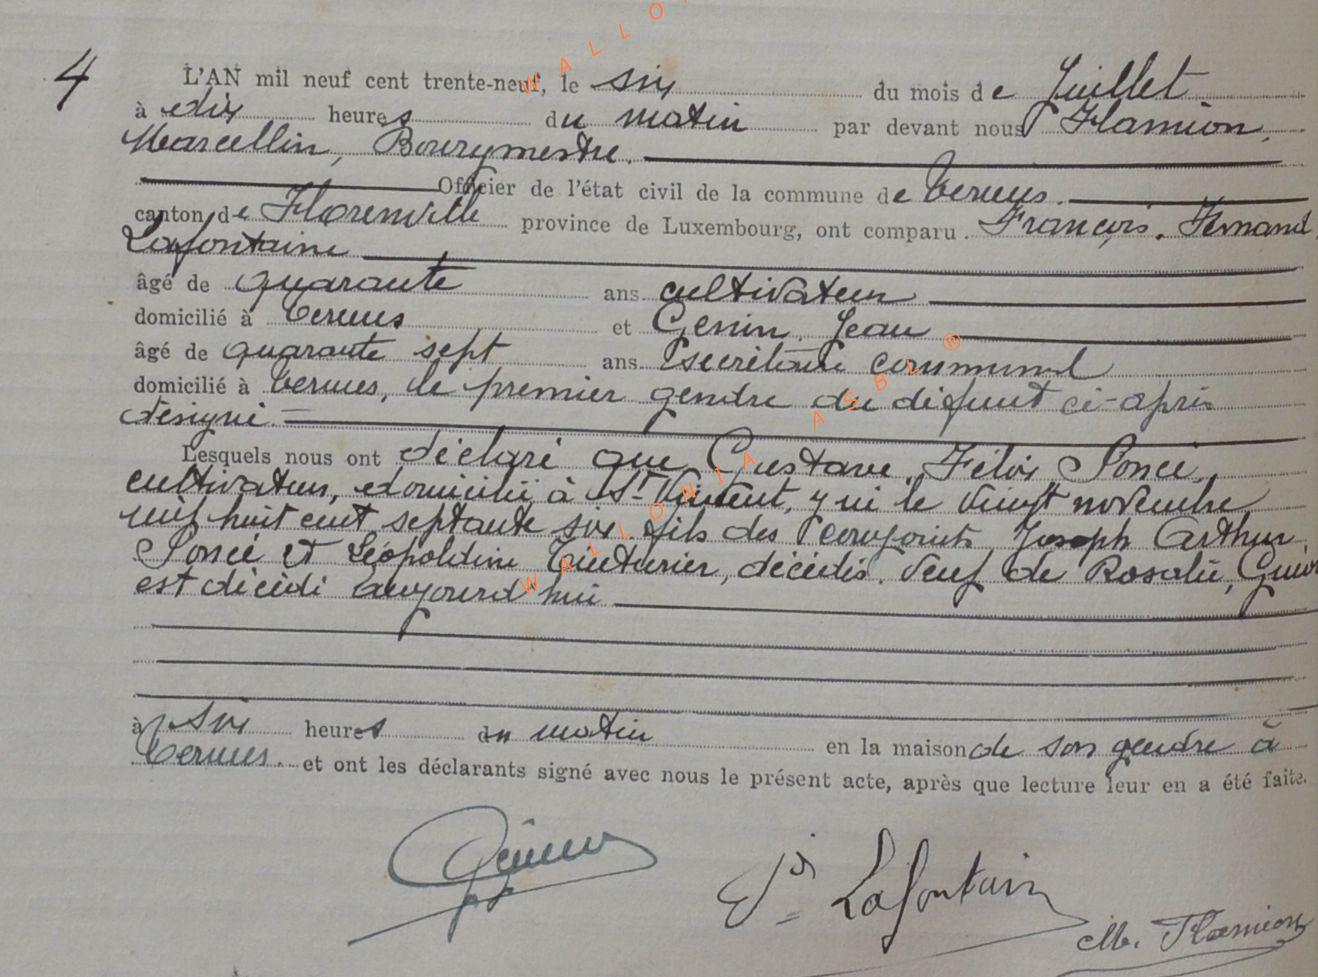 4
L'AN mil neuf cent trente-neuf, le six du mois de Juillet
à dix heures du matin par devant nous Flamion,
Marcellin, Bourgmestre.
Officier de l'état civil de la commune de Termes.
canton de Florenville province de Luxembourg, ont comparu. François. Fernand
Lafontaine
âgé de quarante ans cultivateur
domicilié à Termes et Genin Jean
âgé de quarante sept ans Secrétaire communal
domicilié à Termes, le premier gendre du défunt ci-après
désigné =
Lesquels nous ont déclaré que Gustave, Félix Poncé,
cultivateur, domicilié à St Vincent, y né le vingt novembre
mil huit cent septante six fils des conjoints Joseph Arthur
Poncé et Léopoldine, décédés. Veuf de Rosalie,
est décédé aujourd'hui
à six heures du matin en la maison de son gendre à
Termes. et ont les déclarants signé avec nous le présent acte, après que lecture leur en a été faite.
Génin
Lafontaine
M. Flamion
WALLONIA ASBL ®
WALLO